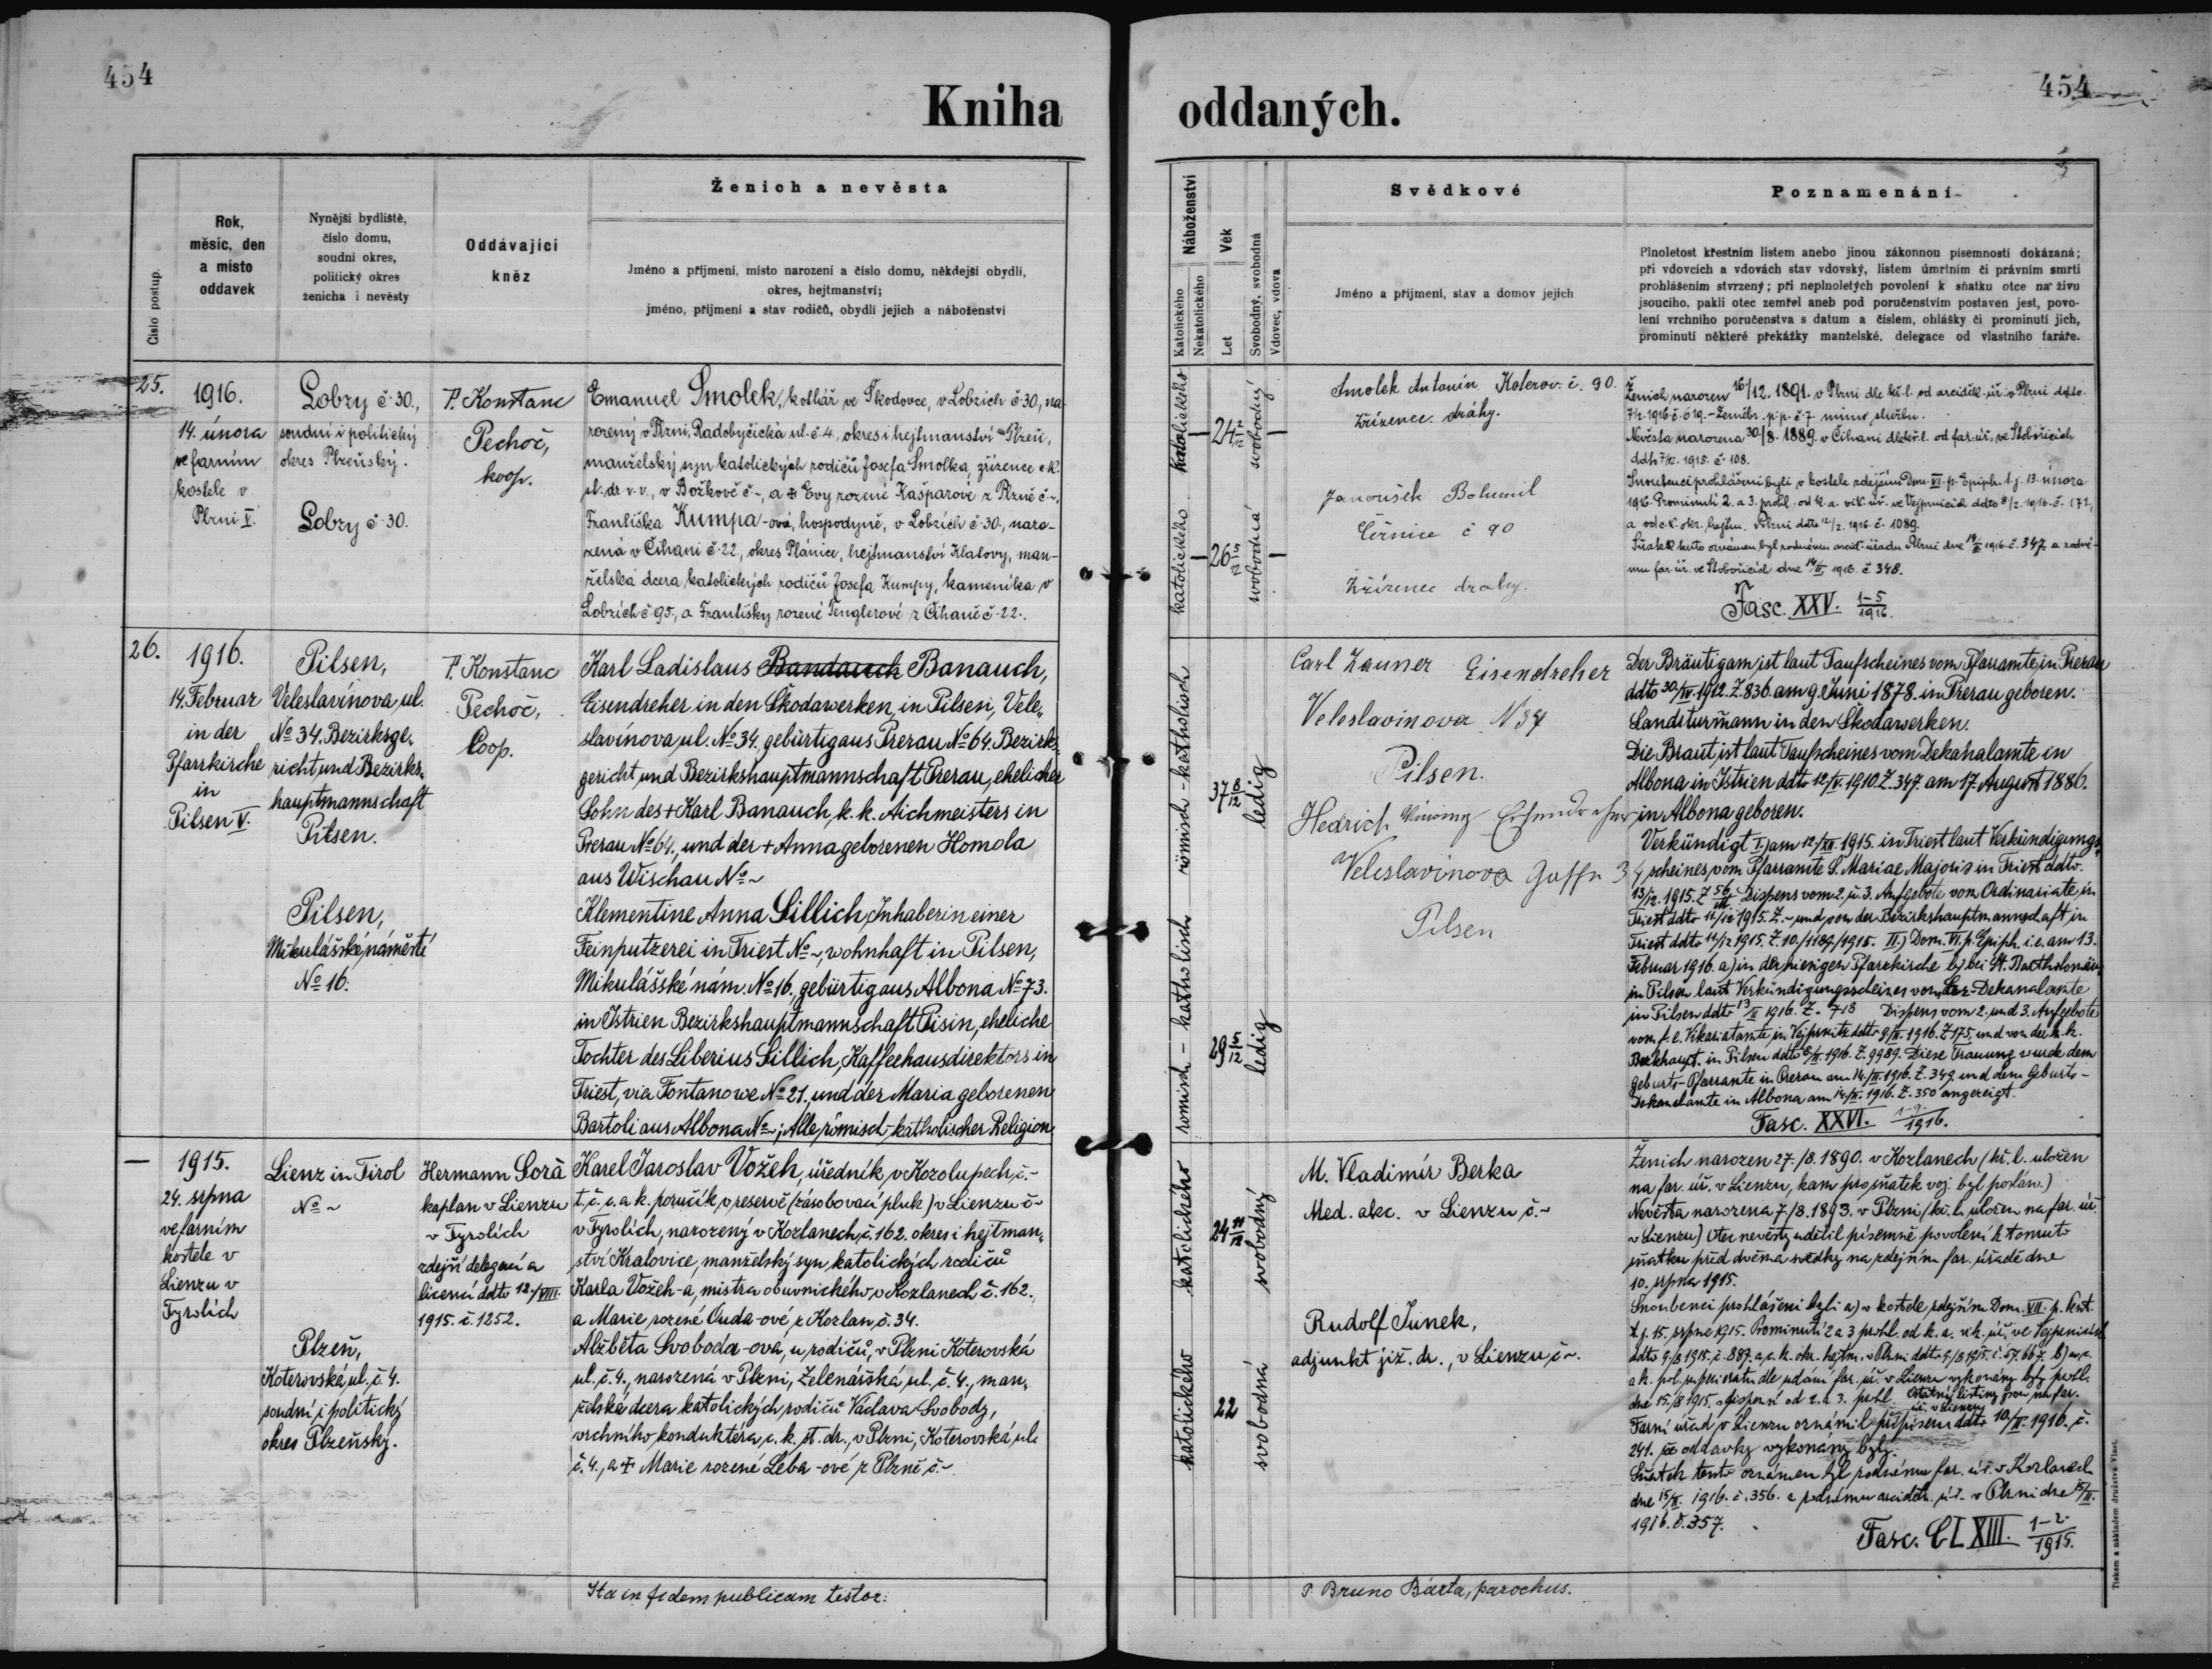 454
454
Kniha oddaných.
Číslo postup.
Rok,
měsíc, den
a místo
oddavek
Nynější bydliště,
číslo domu,
soudní okres,
politický okres
ženicha i nevěsty
Oddávající
kněz
Ženich a nevěsta
Jméno a příjmení, místo narození a číslo domu, někdejší obydlí,
okres, hejtmanství;
jméno, příjmení a stav rodičů, obydlí jejich a náboženství
Náboženství
Katolického
Nekatolického
Věk
Let
Svobodný, svobodná
Vdovec, vdova
Svědkové
Jméno a příjmení, stav a domov jejich
Poznamenání
Plnoletost křestním listem anebo jinou zákonnou písemností dokázaná;
při vdovcích a vdovách stav vdovský, listem úmrtním či právním smrti
prohlášením stvrzený; při neplnoletých povolení k sňatku otce na živu
jsoucího, pakli otec zemřel aneb pod poručenstvím postaven jest, povo-
lení vrchního poručenstva s datum a číslem, ohlášky či prominutí jich,
prominutí některé překážky manželské, delegace od vlastního faráře.
25.
1916.
14. února
ve farním
kostele v
Plzni V.
Lobzy č. 30.,
soudní i politický
okres Plzeňský.
Lobzy č. 30.
P. Konstanc
Pechoč,
koop.
Emanuel Smolek, kotlář ve Škodovce, v Lobzích č. 30, na-
rozený v Plzni, Radobyčická ul. č. 4, okres i hejtmanství Plzeň,
manželský syn katolických rodičů Josefa Smolka, zřízence c.k.
st. dr. v. v., v Božkově č ~, a Evy rozené Kašparové z Plzně č ~.
Františka Kumpa-ová, hospodyně, v Lobzích č. 30, naro-
zená v Číhani č. 22, okres Plánice, hejtmanství Klatovy, man-
želská dcera katolických rodičů Josefa Kumpy, kameníka v
Lobzích č. 95, a Františky rozené Tenglerové z Číhaně č. 22.
katolického
24 2/12
svobodný
katolického
26 5/12
svobodná
Smolek Antonín Koterov. č. 90.
zřízenec dráhy.
Janoušek Bohumil
Černice č 90
Zřízenec dráhy.
Ženich narozen 16/12. 1891. v Plzni dle kř. l. od arciděk. úř. v Plzni ddto
7/2. 1916 č. 619. – Zeměbr. p. p. č. 7 mimo službu.
Nevěsta narozena 30/8. 1889. v Číhani dle kř. l. od far. úř. ve
1915. č. 108.
Snoubenci prohlášeni byli v kostele zdejším Dom. VI. p. Epiph. t. j. 13. února
1916. Prominutí 2. a 3. prohl. od k. a. vik. úř. ve Vejprnicích ddto 8/2. 1916. č. 171,
a od c. k. okr. hejtm. v Plzni ddto 12/2. 1916. č. 1089.
Sňatek tento oznámen byl rodnému arcid. úřadu v Plzni dne 14/II 1916. č. 347 a rodné-
mu far. úř. ve dne 14/II. 1916. č. 348.
Fasc. XXV. 1-5/1916.
26.
1916.
14. Februar
in der
Pfarrkirche
in
Pilsen V.
Pilsen,
Veleslavínova ul.
No 34. Bezirksge-
richt und Bezirks-
hauptmannschaft
Pilsen.
Pilsen,
Mikulášské náměstí
No 16.
P. Konstanc
Pechoč,
Coop.
Karl Ladislaus Bandauch Banauch,
Eisendreher in den Škodawerken, in Pilsen, Vele-
slavínova ul. No 34, gebürtig aus Prerau No 64. Bezirks-
gericht und Bezirkshauptmannschaft Prerau, ehelicher
Sohn des + Karl Banauch, k. k. Aichmeisters in
Prerau No 64., und der + Anna geborenen Homola
aus Wischau No ~
Klementine Anna Lillich, Inhaberin einer
Feinputzerei in Triest No ~, wohnhaft in Pilsen,
Mikulášské nám. No 16, gebürtig aus Albona No 73.
in Istrien Bezirkshauptmannschaft Pisin, eheliche
Tochter des Liberius Lillich, Kaffeehausdirektors in
Triest, via Fontanowe No 21., und der Maria geborenen
Bartoli aus Albona No ~; Alle römisch-katholischer Religion
römisch-katholisch
37 8/12
ledig
römisch-katholisch
29 5/12
ledig
Carl Zauner Eisendreher
Veleslavinova N 34
Pilsen.
Hedrich
Veleslavinova Gasse 34
Pilsen
Der Bräutigam ist laut Taufscheines vom Pfarramte in Prerau
ddto 30/IV. 1912. Z. 836. am 9. Juni 1878. in Prerau geboren.
Landsturmann in den Škodawerken.
Die Braut ist laut Taufscheines vom Dekanalamte in
Albona in Istrien ddto 12/V. 1910. Z. 347. am 17. August 1886.
in Albona geboren.
Verkündigt I.) am 12./XII. 1915. in Triest laut Verkündigungs-
scheines vom Pfarramte S. Mariae Majoris in Triest ddto
13/12. 1915. Z 56/ Dispens vom 2. u. 3. Aufgebote vom Ordinariate in
Triest ddto 11/12 1915. Z. ~ und von der Bezirkshauptmannschaft in
Triest ddto 14/12 1915. Z. 10./1189/1915. II.) Dom. VI. p. Epiph. i. e. am 13.
Februar 1916. a) in der hiesigen Pfarrkirche b) bei St. Bartholomäus
in Pilsen laut Verkündigungsscheines vom Erz-Dekanalamte
in Pilsen ddto 13/II 1916. Z. 718 Dispens vom 2. und 3. Aufgebote
vom f. e. Vikariatamte in Vejprnitz ddto 9/II. 1916. Z 175, und von der k. k.
Bezkhaupt. in Pilsen ddto 8/II. 1916. Z. 9989. Diese Trauung wurde dem
Geburts-Pfarramte in Prerau am 14./II. 1916. Z. 349 und dem Geburts-
Dekanalamte in Albona am 14/II. 1916. Z. 350 angezeigt.
Fasc. XXVI. 1-9/1916.
—
1915.
24. srpna
ve farním
kostele v
Lienzu v
Tyrolích
Lienz in Tirol
No ~
Plzeň,
Koterovská ul. č. 4.
soudní i politický
okres Plzeňský.
Hermann Lorà
kaplan v Lienzu
v Tyrolích
zdejší delegací a
licencí ddto 12./VIII.
1915. č. 1252.
Karel Jaroslav Vožeh, úředník v Kozolupech, č. ~
t. č. c. a k. poručík v reservě (zásobovací pluk) v Lienzu č ~
v Tyrolích, narozený v Kozlanech, č. 162. okres i hejtman-
ství Kralovice, manželský syn katolických rodičů
Karla Vožeh-a, mistra obuvnického v Kozlanech č. 162.,
a Marie rozené Ouda-ové, z Kozlan, č. 34.
Alžběta Svoboda-ova, u rodičů, v Plzni Koterovská
ul. č. 4., narozená v Plzni, Želenářská ul. č. 4., man-
želská dcera katolických rodičů Václava Svobody,
vrchního konduktéra, c. k. st. dr., v Plzni, Koterovská ul.
č. 4., a + Marie rozené Leba-ové z Plzně, č. ~
katolického
24 11/12
svobodný
katolického
22
svobodná
M. Vladimír Berka
Med. akc. v Lienzu č. ~
Rudolf Junek,
adjunkt již. dr., v Lienzu č ~.
Ženich narozen 27./8. 1890. v Kozlanech (kř. l. uložen
na far. úř. v Lienzu, kam pro sňatek voj. byl poslán.)
Nevěsta narozena 7/8. 1893. v Plzni (kř. l. uložen na far. úř.
v Lienzu) Otec nevěsty udělil písemně povolení k tomuto
sňatku před dvěma svědky na zdejším far. úřadě dne
10. srpna 1915.
Snoubenci prohlášeni byli a) v kostele zdejším Dom. VII. p. Pent.
t. j. 15. srpna 1915. Prominutí 2 a 3 prohl. od k. a. vik. úř. ve Vejprnicích
ddto 9/8 1915. č. 887. a c. k. okr. hejtm. v Plzni ddto 9/8 1915. č. 57.667. b) u c.
a k. pol. superiorátu dle udání far. úř. v Lienzu vykonány byly prohl.
dne 15./8 1915. s dispensí od 2. a 3. prohl. Ostatní listiny jsou na far.
úř. v Lienzu
Farní úřad v Lienzu oznámil přípisem ddto 10/II. 1916, č.
241. že oddavky vykonány byly.
Sňatek tento oznámen byl rodnému far. úř. v Kozlanech
dne 15/II. 1916. č. 356. a rodnému arciděk. úř. v Plzni dne 15/II.
1916. č. 357.
Fasc. CLXIII. 1-2/1915.
Ita in fidem publicam testor:
P. Bruno Bárta, parochus.
Tiskem a nákladem družstva Vlast.